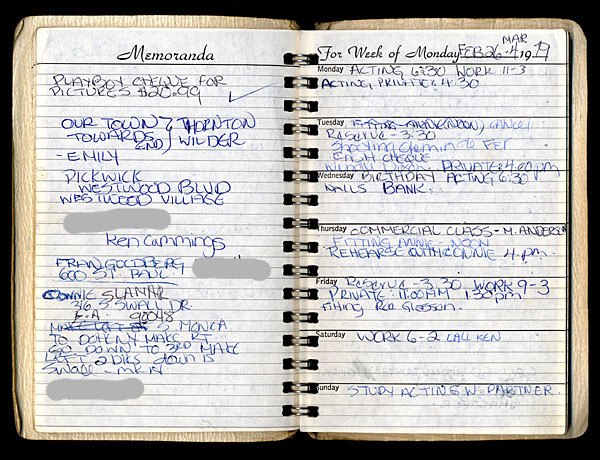 Memoranda
PLAYBOY CHEQUE FOR
PICTURES $20.99
OUR TOWN} THORNTON
TOWARDS END) WILDER
- EMILY
PICKWICK
WESTWOOD BLVD
WESTWOOD VILLAGE
Ken Cummings
FRAN GOLDBERG
600 ST. PAUL
CONNIE SLAMAR
316 S SWALL DR.
L.A. 90048
S. MONICA
TO DOHENY MAKE RT
GO DOWN TO 3RD MAKE
LEFT 2 BLKS down is
Swall - mk rt
For Week of Monday FEB 26 - MAR 4 1979
Monday ACTING 6:30 WORK 11-3
ACTING PRIVATE 4:30
Tuesday FITTING ANNIE (NOON) CANCEL
Reserve - 3:30
Shooting
CASH CHEQUE
PRIVATE 4:00 pm
Wednesday BIRTHDAY ACTING 6:30
NAILS BANK.
Thursday COMMERCIAL CLASS - M. ANDERSON
FITTING ANNIE - NOON
REHEARSE WITH CONNIE 4 pm.
Friday Reserve - 3.30 WORK 9-3
PRIVATE 11:00 AM 1:30 pm
Fitting Ree Gleason.
Saturday WORK 6-2 CALL KEN
Sunday STUDY ACTING W. PARTNER